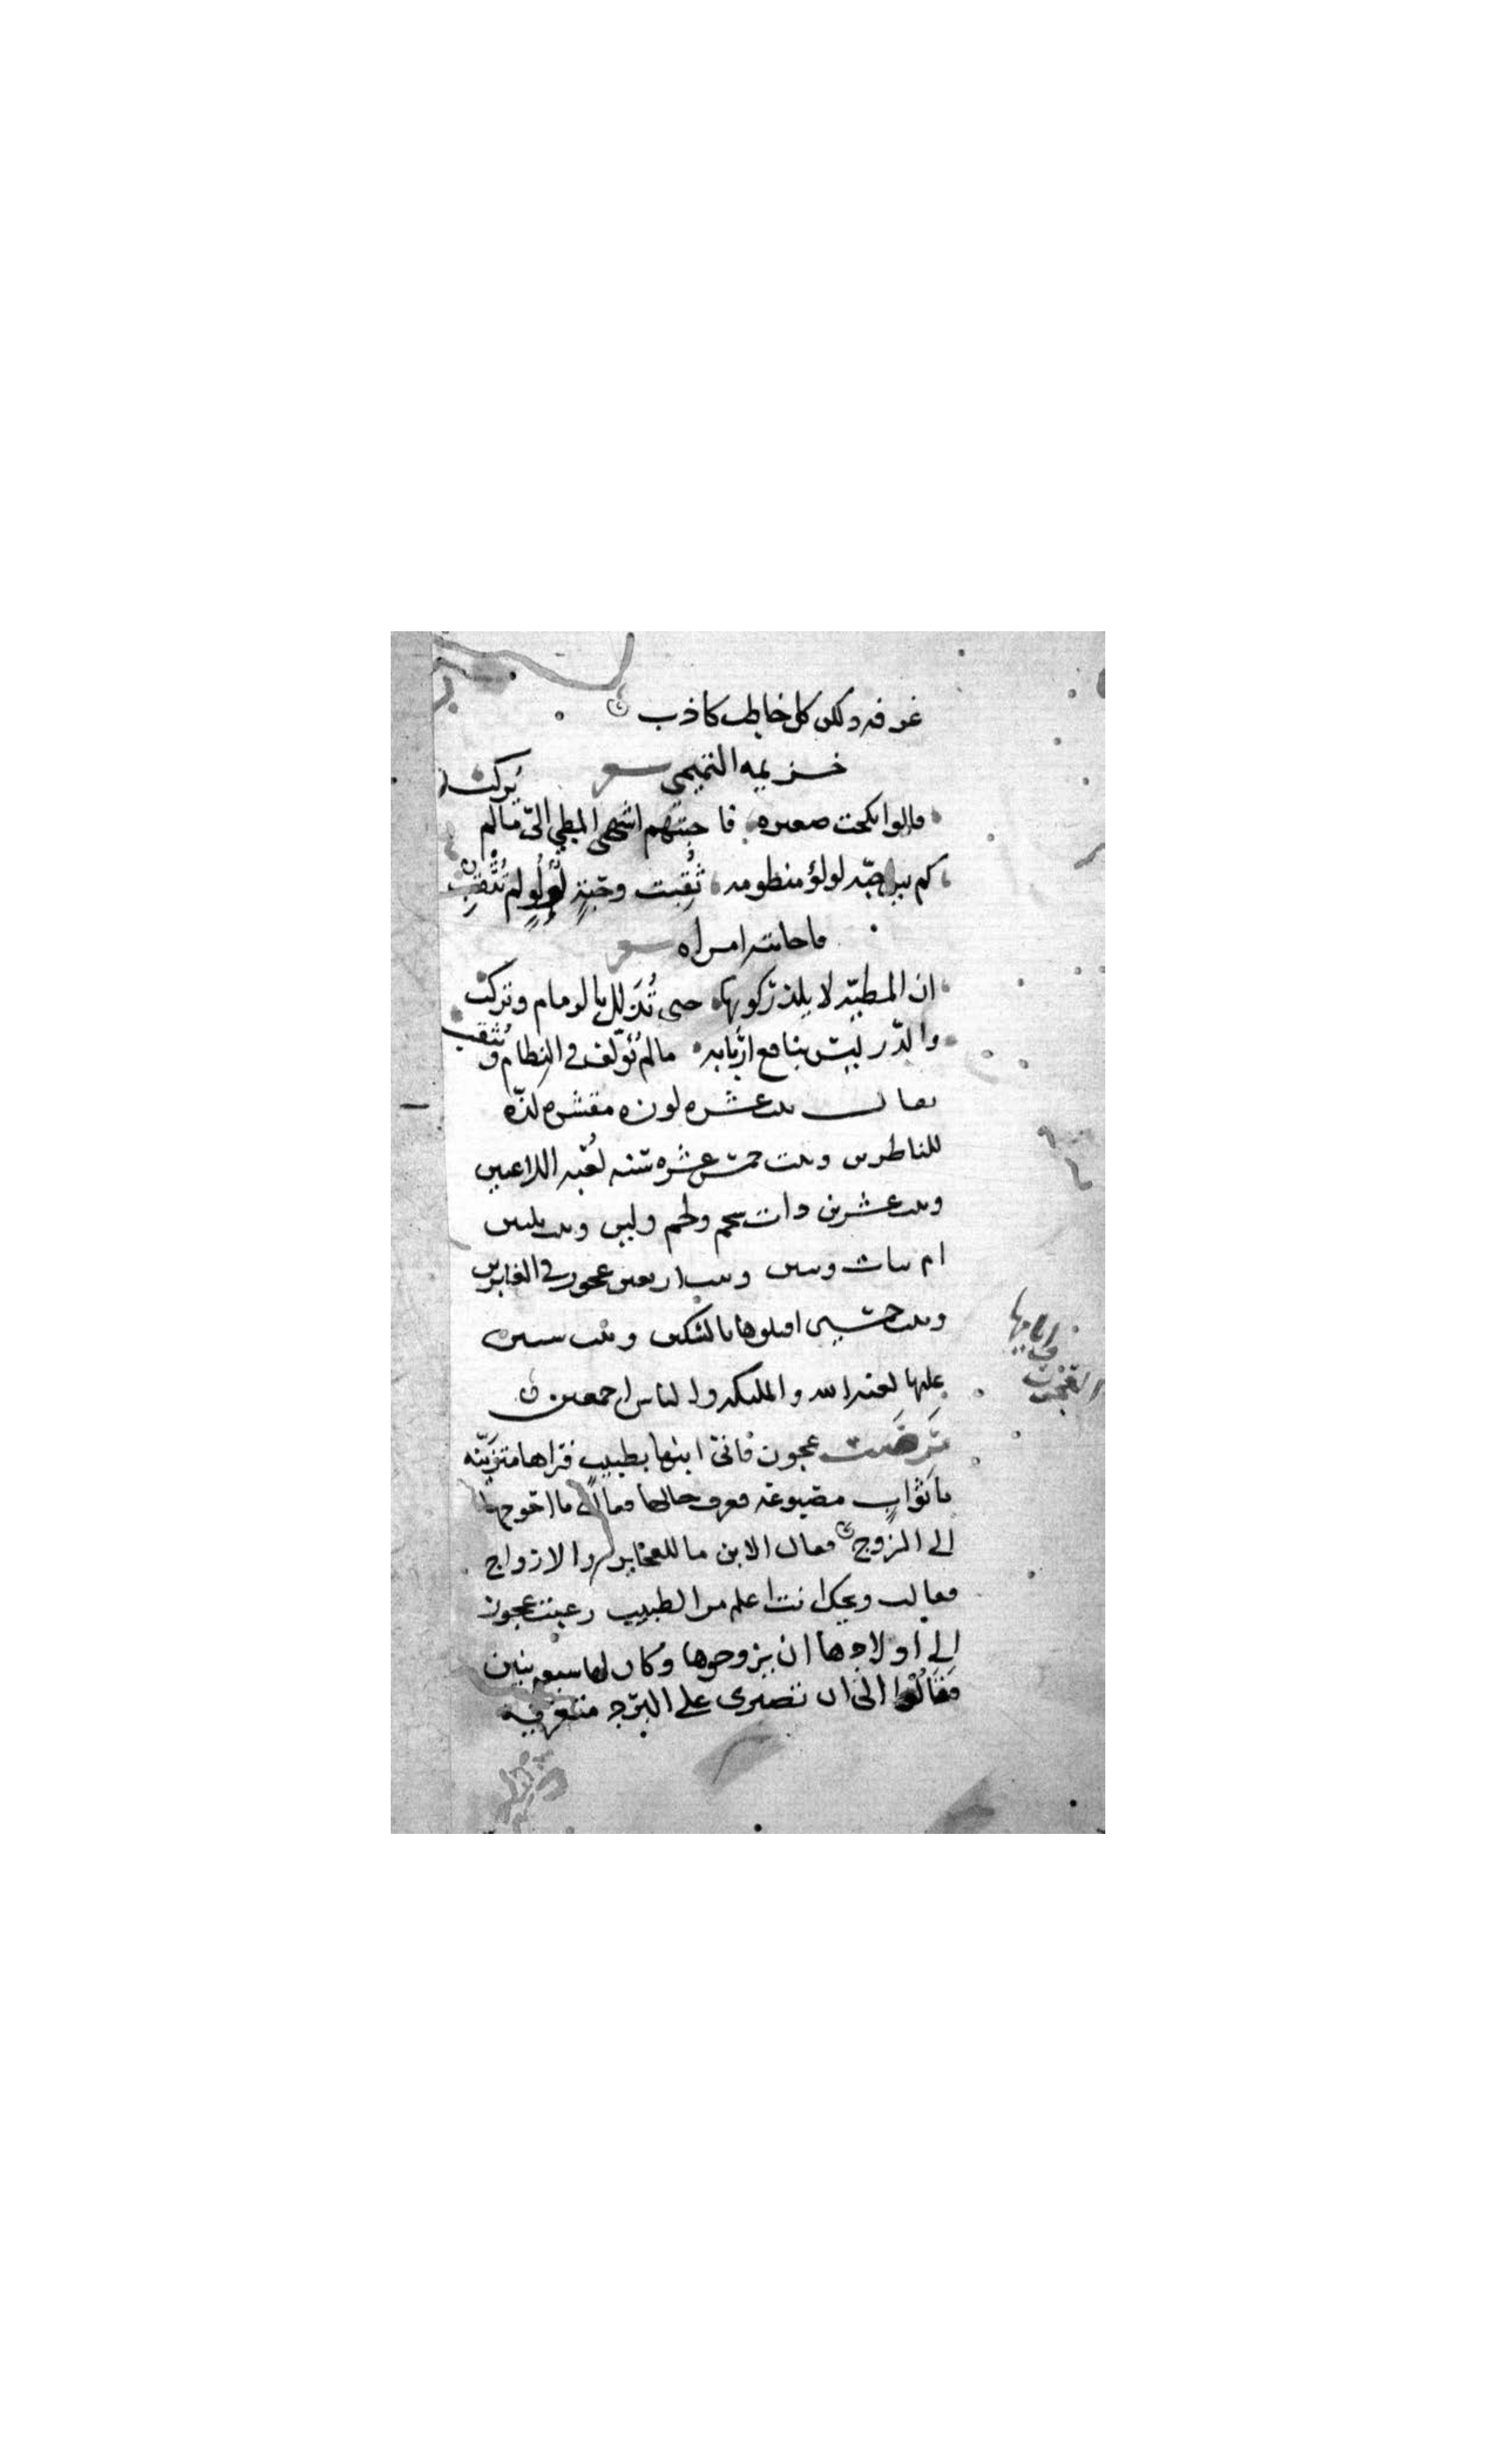 غرفه ولكن كل خاطب كاذب
خزيمه التميمي شعر
قالوا نكحت صغيره فاجبتهم اشهى المطي الى مالم يركب
كم بين حبه لولؤ منظومه ثُقبت وحبةِ لؤلؤٍ لم تُثقبِ
فاجابته امراه شعر
ان المطيّه لا يلذ ركوبها حتى تُذلل بالزمام وتركب
والدّر ليس بنافع اربابه مالم يُؤلّف في النظام ويُثقب
يقال بنت عشره لوزه مقشره لذّه
للناظرين وبنت خمس عشره سنه لعُبه اللاعبين
وبنت عشرين ذات شحم ولحم ولين وبنت ثلثين
ام بنات وبنين وبنت اربعين عجوز في الغابرين
وبنت خمسين اقتلوها بالسكين وبنت ستين
عليها لعنه الله والملئكه والناس اجمعين
مَرضَت عجوز فاتى ابنها بطبيب فراها متزيّنه
باثواب مصبوغه فعرف حالها فقال ما احوجها
الى الزوج فقال الابن ما للعجايز والازواج
فقالت ويحك انت اعلم من الطبيب رغبت عجوز
الى اولادها ان يزوجوها وكان لها سبع بنين
فقالوا الى ان تصبرى على البرد متعريه